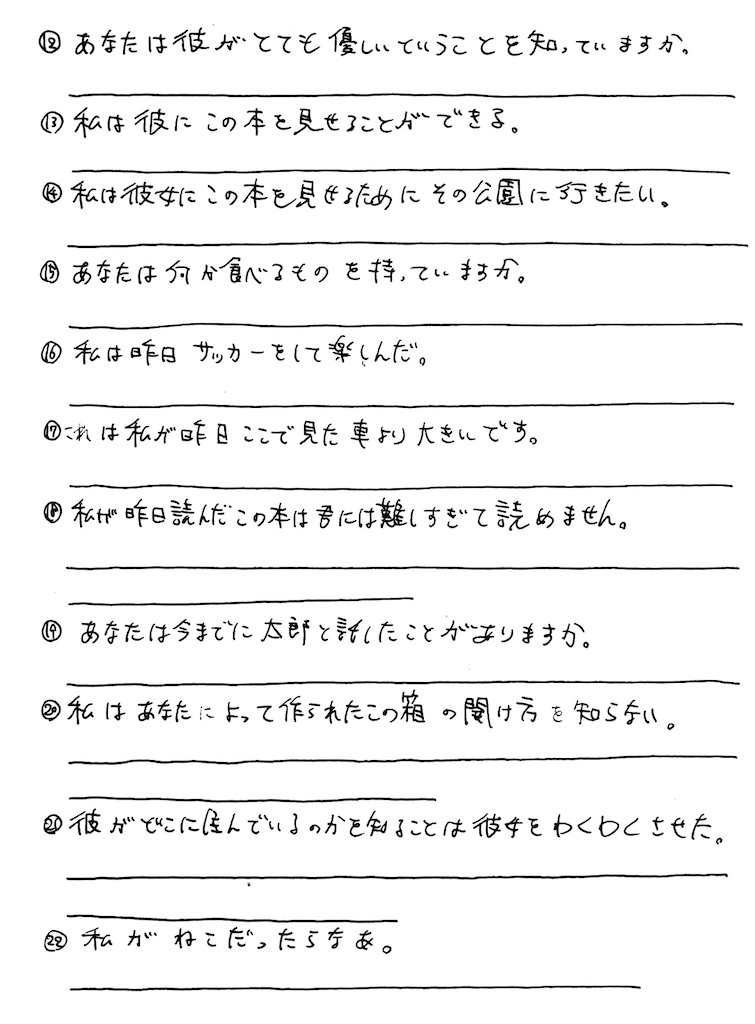 ⑫ あなたは彼がとても優しいということを知っていますか。
⑬ 私は彼にこの本を見せることができる。
⑭ 私は彼女にこの本を見せるためにその公園に行きたい。
⑮ あなたは何か食べるものを持っていますか。
⑯ 私は昨日サッカーをして楽しんだ。
⑰ これは私が昨日ここで見た車より大きいです。
⑱ 私が昨日読んだこの本は君には難しすぎて読めません。
⑲ あなたは今までに太郎と話したことがありますか。
⑳ 私はあなたによって作られたこの箱の開け方を知らない。
㉑ 彼がどこに住んでいるのかを知ることは彼女をわくわくさせた。
㉒ 私がねこだったらなあ。